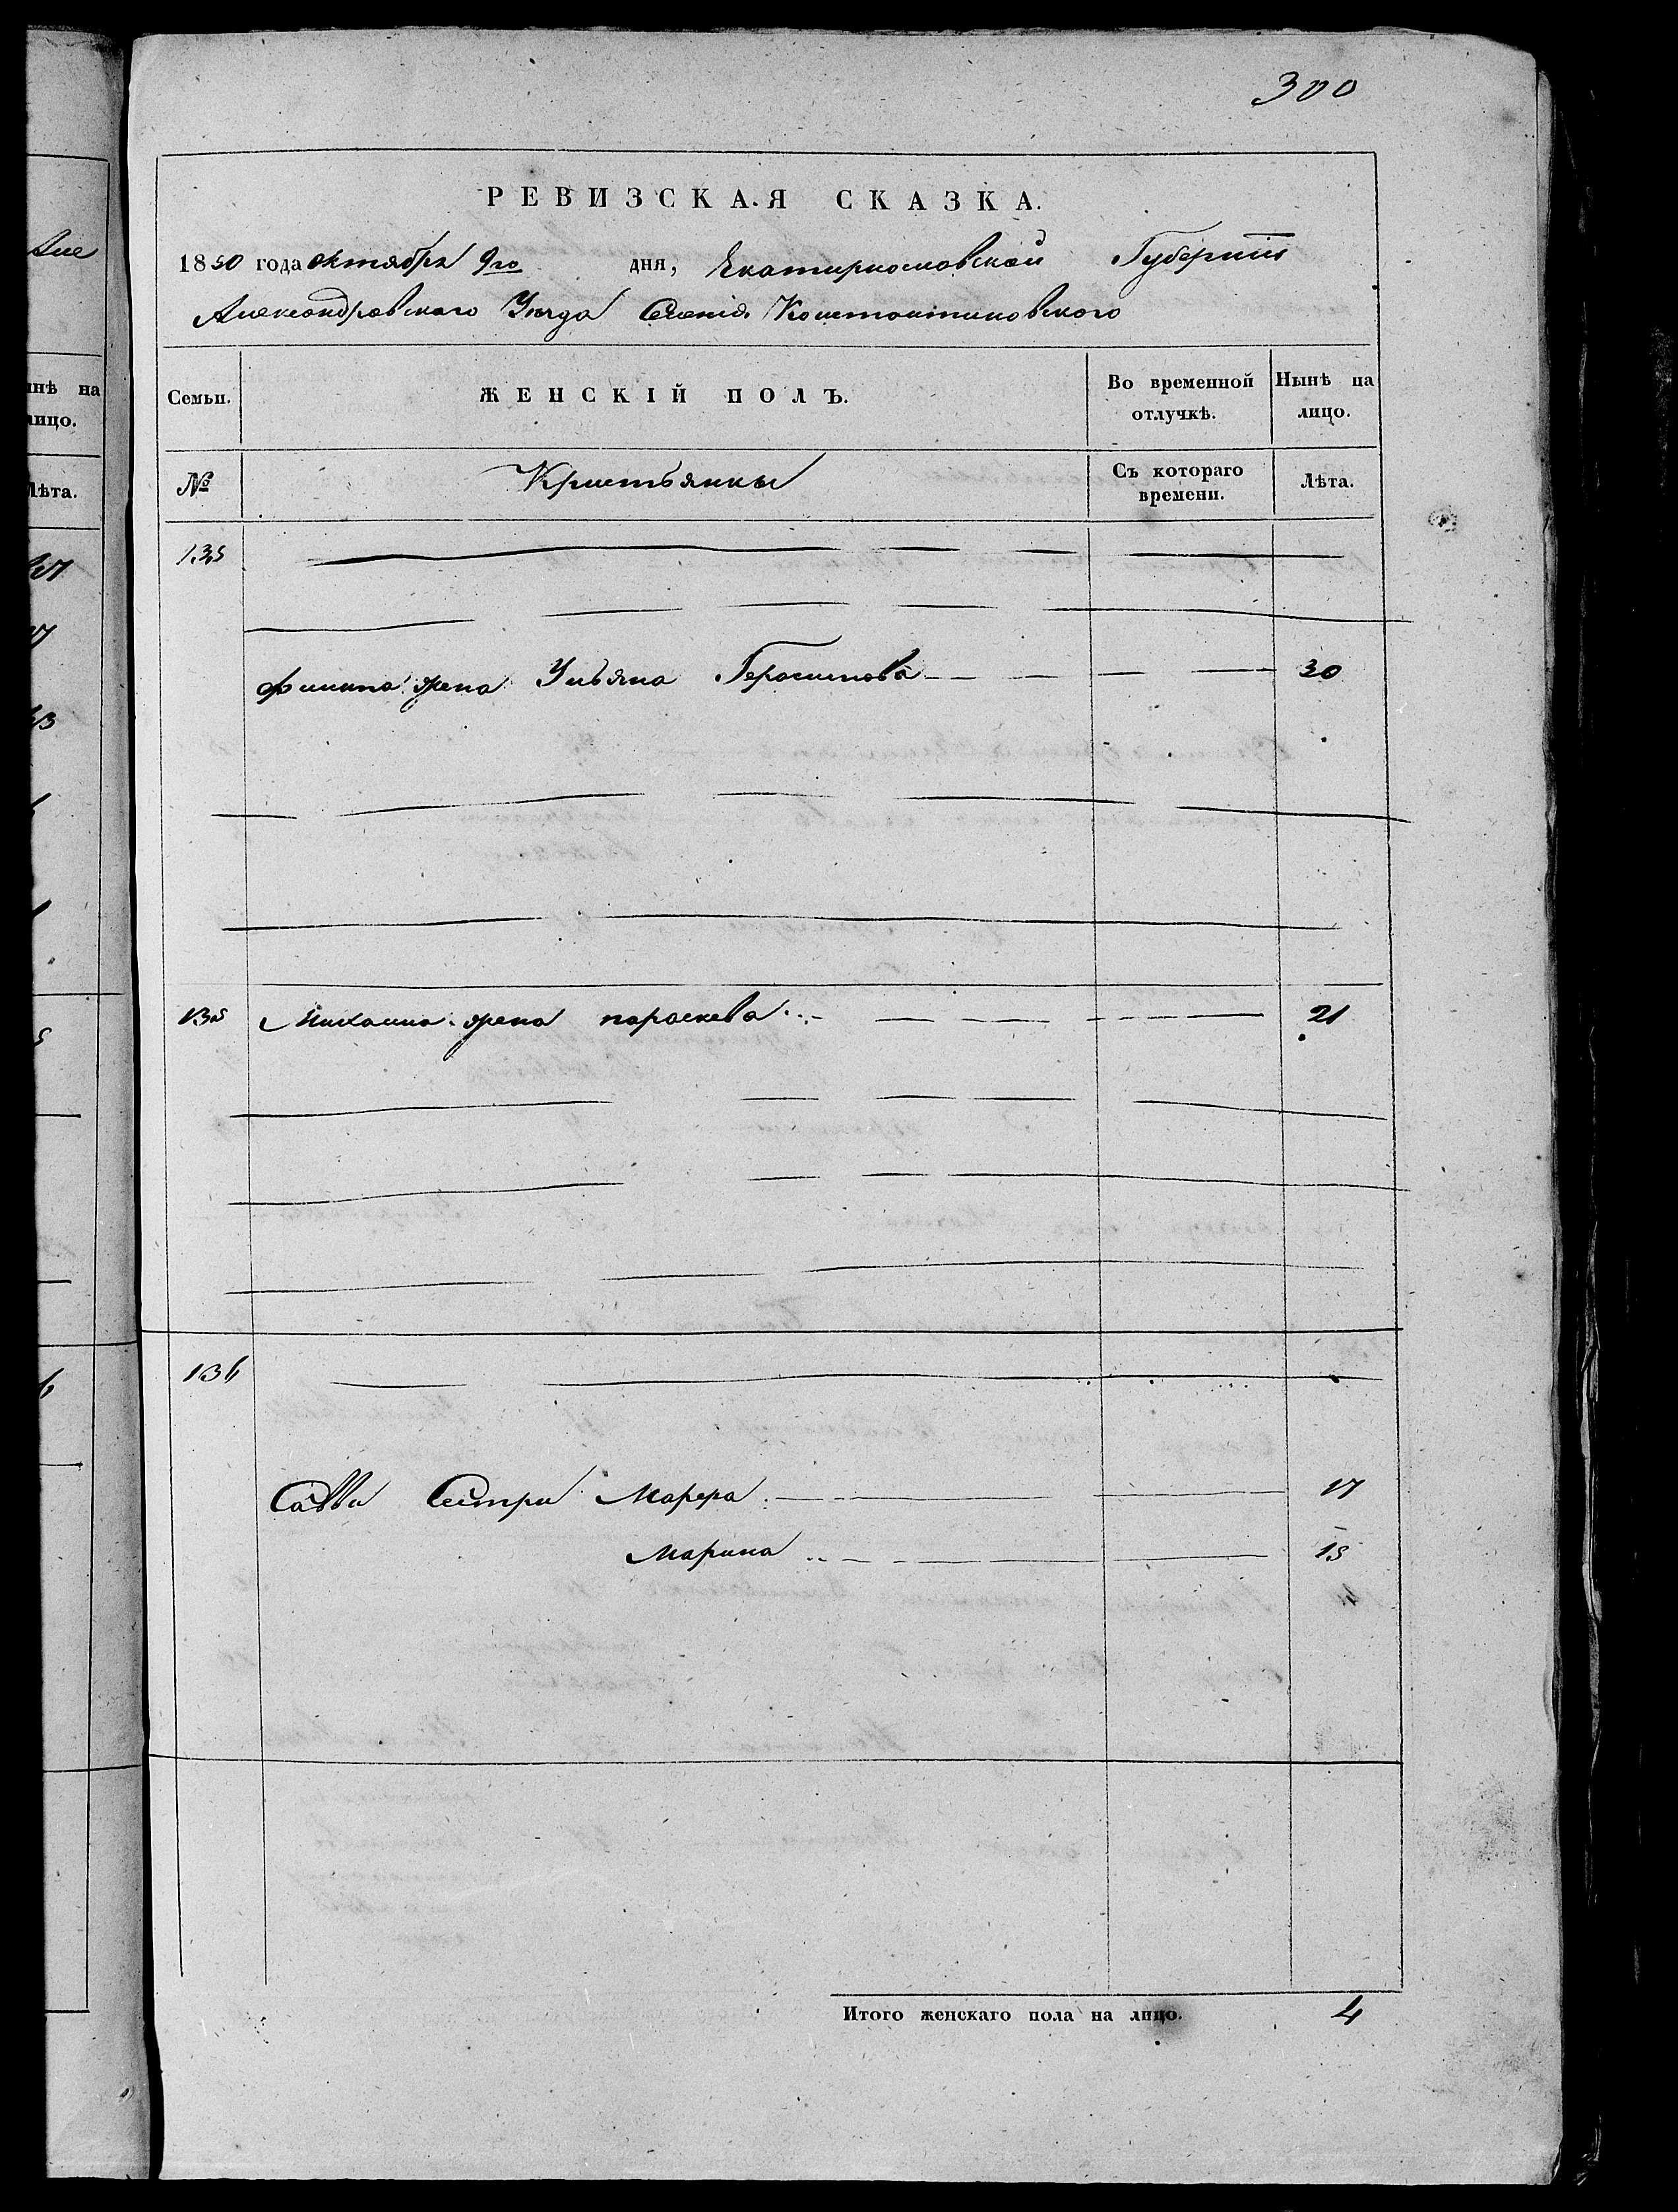 300
РЕВИЗСКАЯ СКАЗКА.
1850 года октября 9го дня, Екатиринославской Губернiи
Александровского Уезда Селенiя Константиновского
Семьи. ЖЕНСКІЙ ПОЛЪ. Во временной отлучкѣ. Нынѣ на лицо.
№ Кристьянки Съ котораго времени. Лѣта.
135
Филипа жена Ульяна Герасимова 30
135 Михаила жена параскева 21
136
Саввы Сестры Марфа 17
Марина 15
Итого женскаго пола на лицо. 4
Але
нѣ на
лицо.
Лѣта.